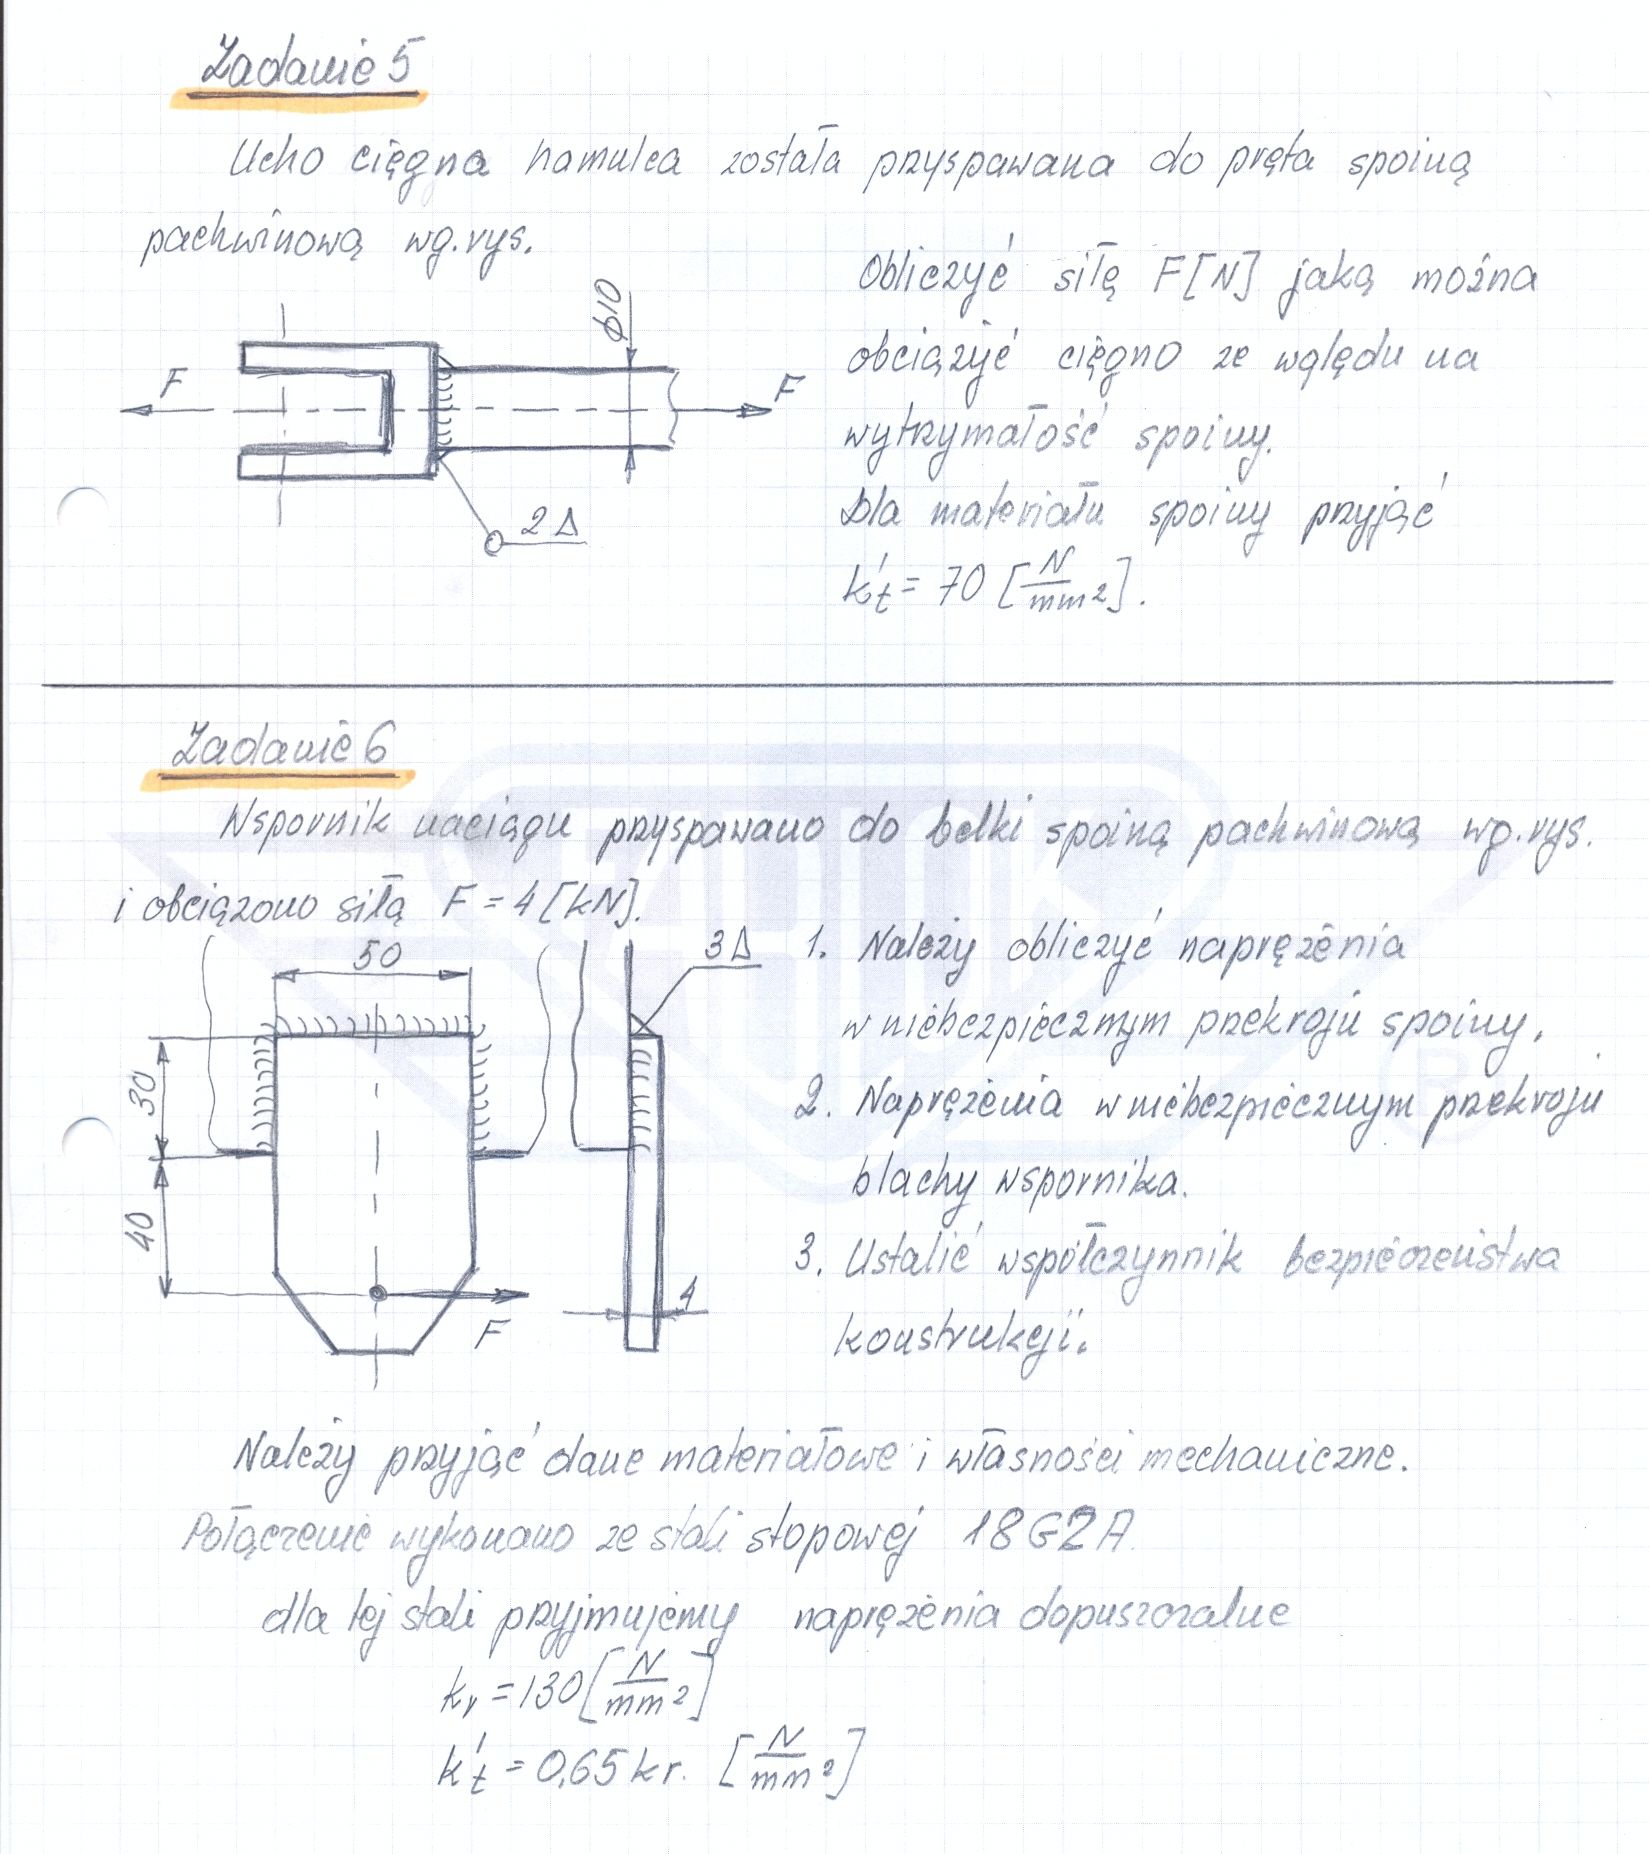 Zadanie 5
Ucho cięgna hamulca została przyspawana do pręta spoiną
pachwinową wg.rys.
Obliczyć siłę F[N] jaką można
obciążyć cięgno ze wględu na
wytrzymałość spoiny.
Dla materiału spoiny przyjąć
k't = 70 [N/mm²].
ø10
F
F
2Δ
Zadanie 6
Wspornik naciągu przyspawano do belki spoiną pachwinową wg.rys.
i obciążono siłą F = 4 [kN].
50
3Δ
30
40
F
4
1. Należy obliczyć naprężenia
w niebezpiecznym przekroju spoiny.
2. Naprężenia w niebezpiecznym przekroju
blachy wspornika.
3. Ustalić współczynnik bezpieczeństwa
konstrukcji.
Należy przyjąć dane materiałowe i własności mechaniczne.
Połączenie wykonano ze stali stopowej 18G2A.
dla tej stali przyjmujemy naprężenia dopuszczalne
kr = 130 [N/mm²]
k't = 0,65 kr. [N/mm²]